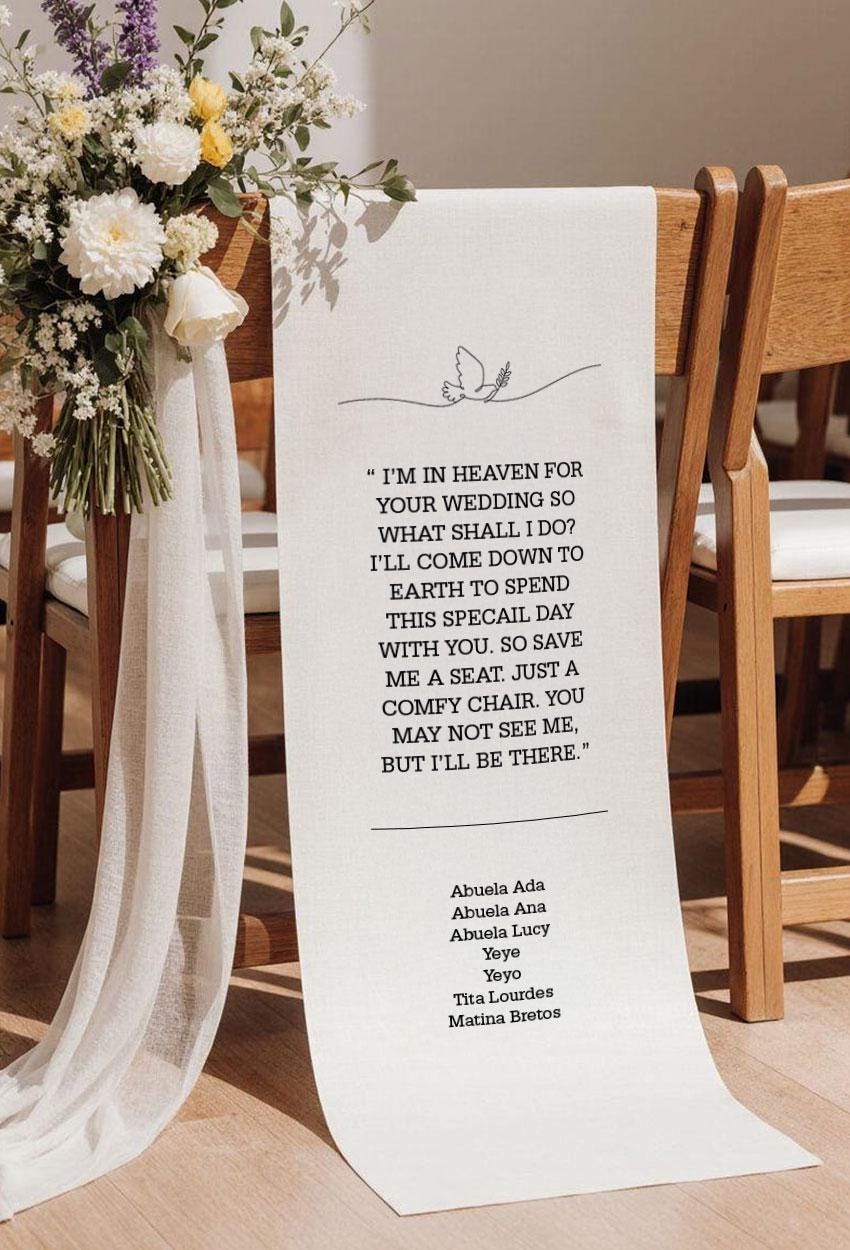 “ I’M IN HEAVEN FOR
YOUR WEDDING SO
WHAT SHALL I DO?
I’LL COME DOWN TO
EARTH TO SPEND
THIS SPECAIL DAY
WITH YOU. SO SAVE
ME A SEAT. JUST A
COMFY CHAIR. YOU
MAY NOT SEE ME,
BUT I’LL BE THERE.”
Abuela Ada
Abuela Ana
Abuela Lucy
Yeye
Yeyo
Tita Lourdes
Matina Bretos